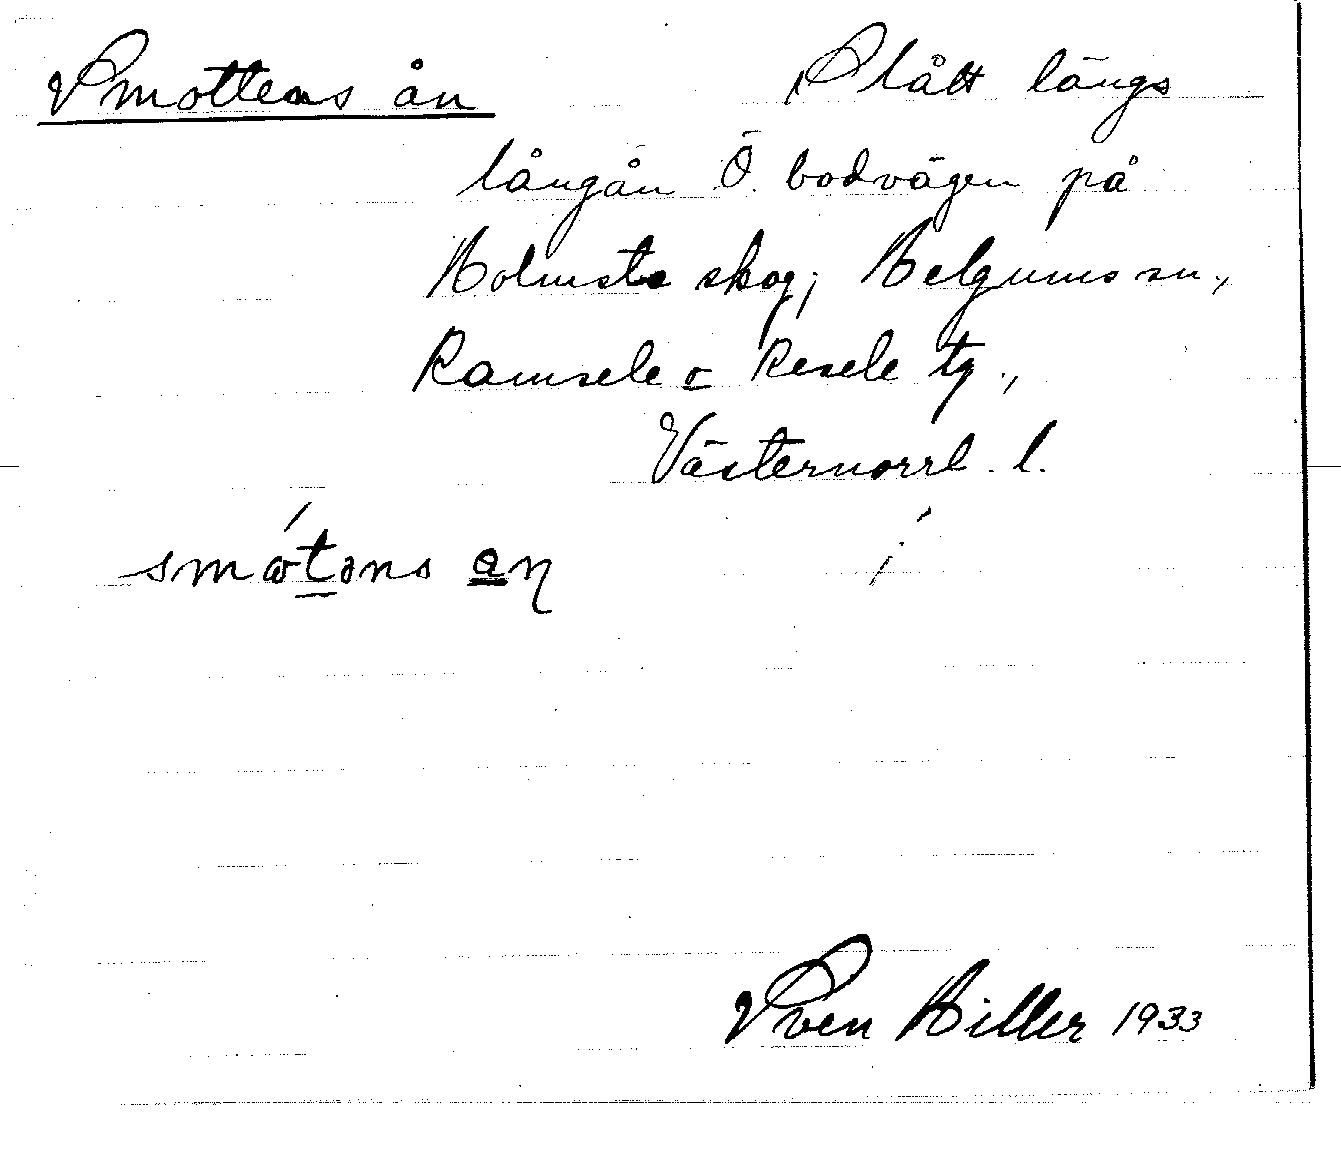 Smottens ån Slått längs
långån Ö. bodvägen på
Holmsta skog, Helgums sn.,
Ramsele o Resele tg.,
Västernorrl. l.
smótəns aŋ
Sven Hiller 1933